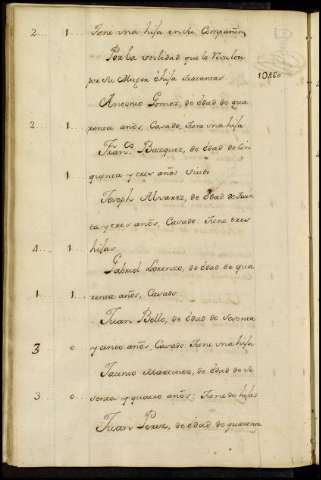 2 1 Tiene una hija en su Compañia,
Por la
que la
por su Muger é hija
10 860
Antonio Gomez, de edad de qua
2 1 renta años, Casado, tiene una hija
Fran.co Bazquez, de edad de cin
1 quenta y tres años Viudo
Joseph Alvarez, de edad de
ta y tres años, Casado. tiene tres
4 1 hijas
Gabriel Lorenzo, de edad de qua
1 1 renta años, Casado
Juan Bello, de edad de sesenta
3 0 y cinco años, Casado. tiene una hija
Jacinto Martinez, de edad de se
3 0 senta y quatro años; tiene dos hijas
Juan Perez, de edad de quarenta